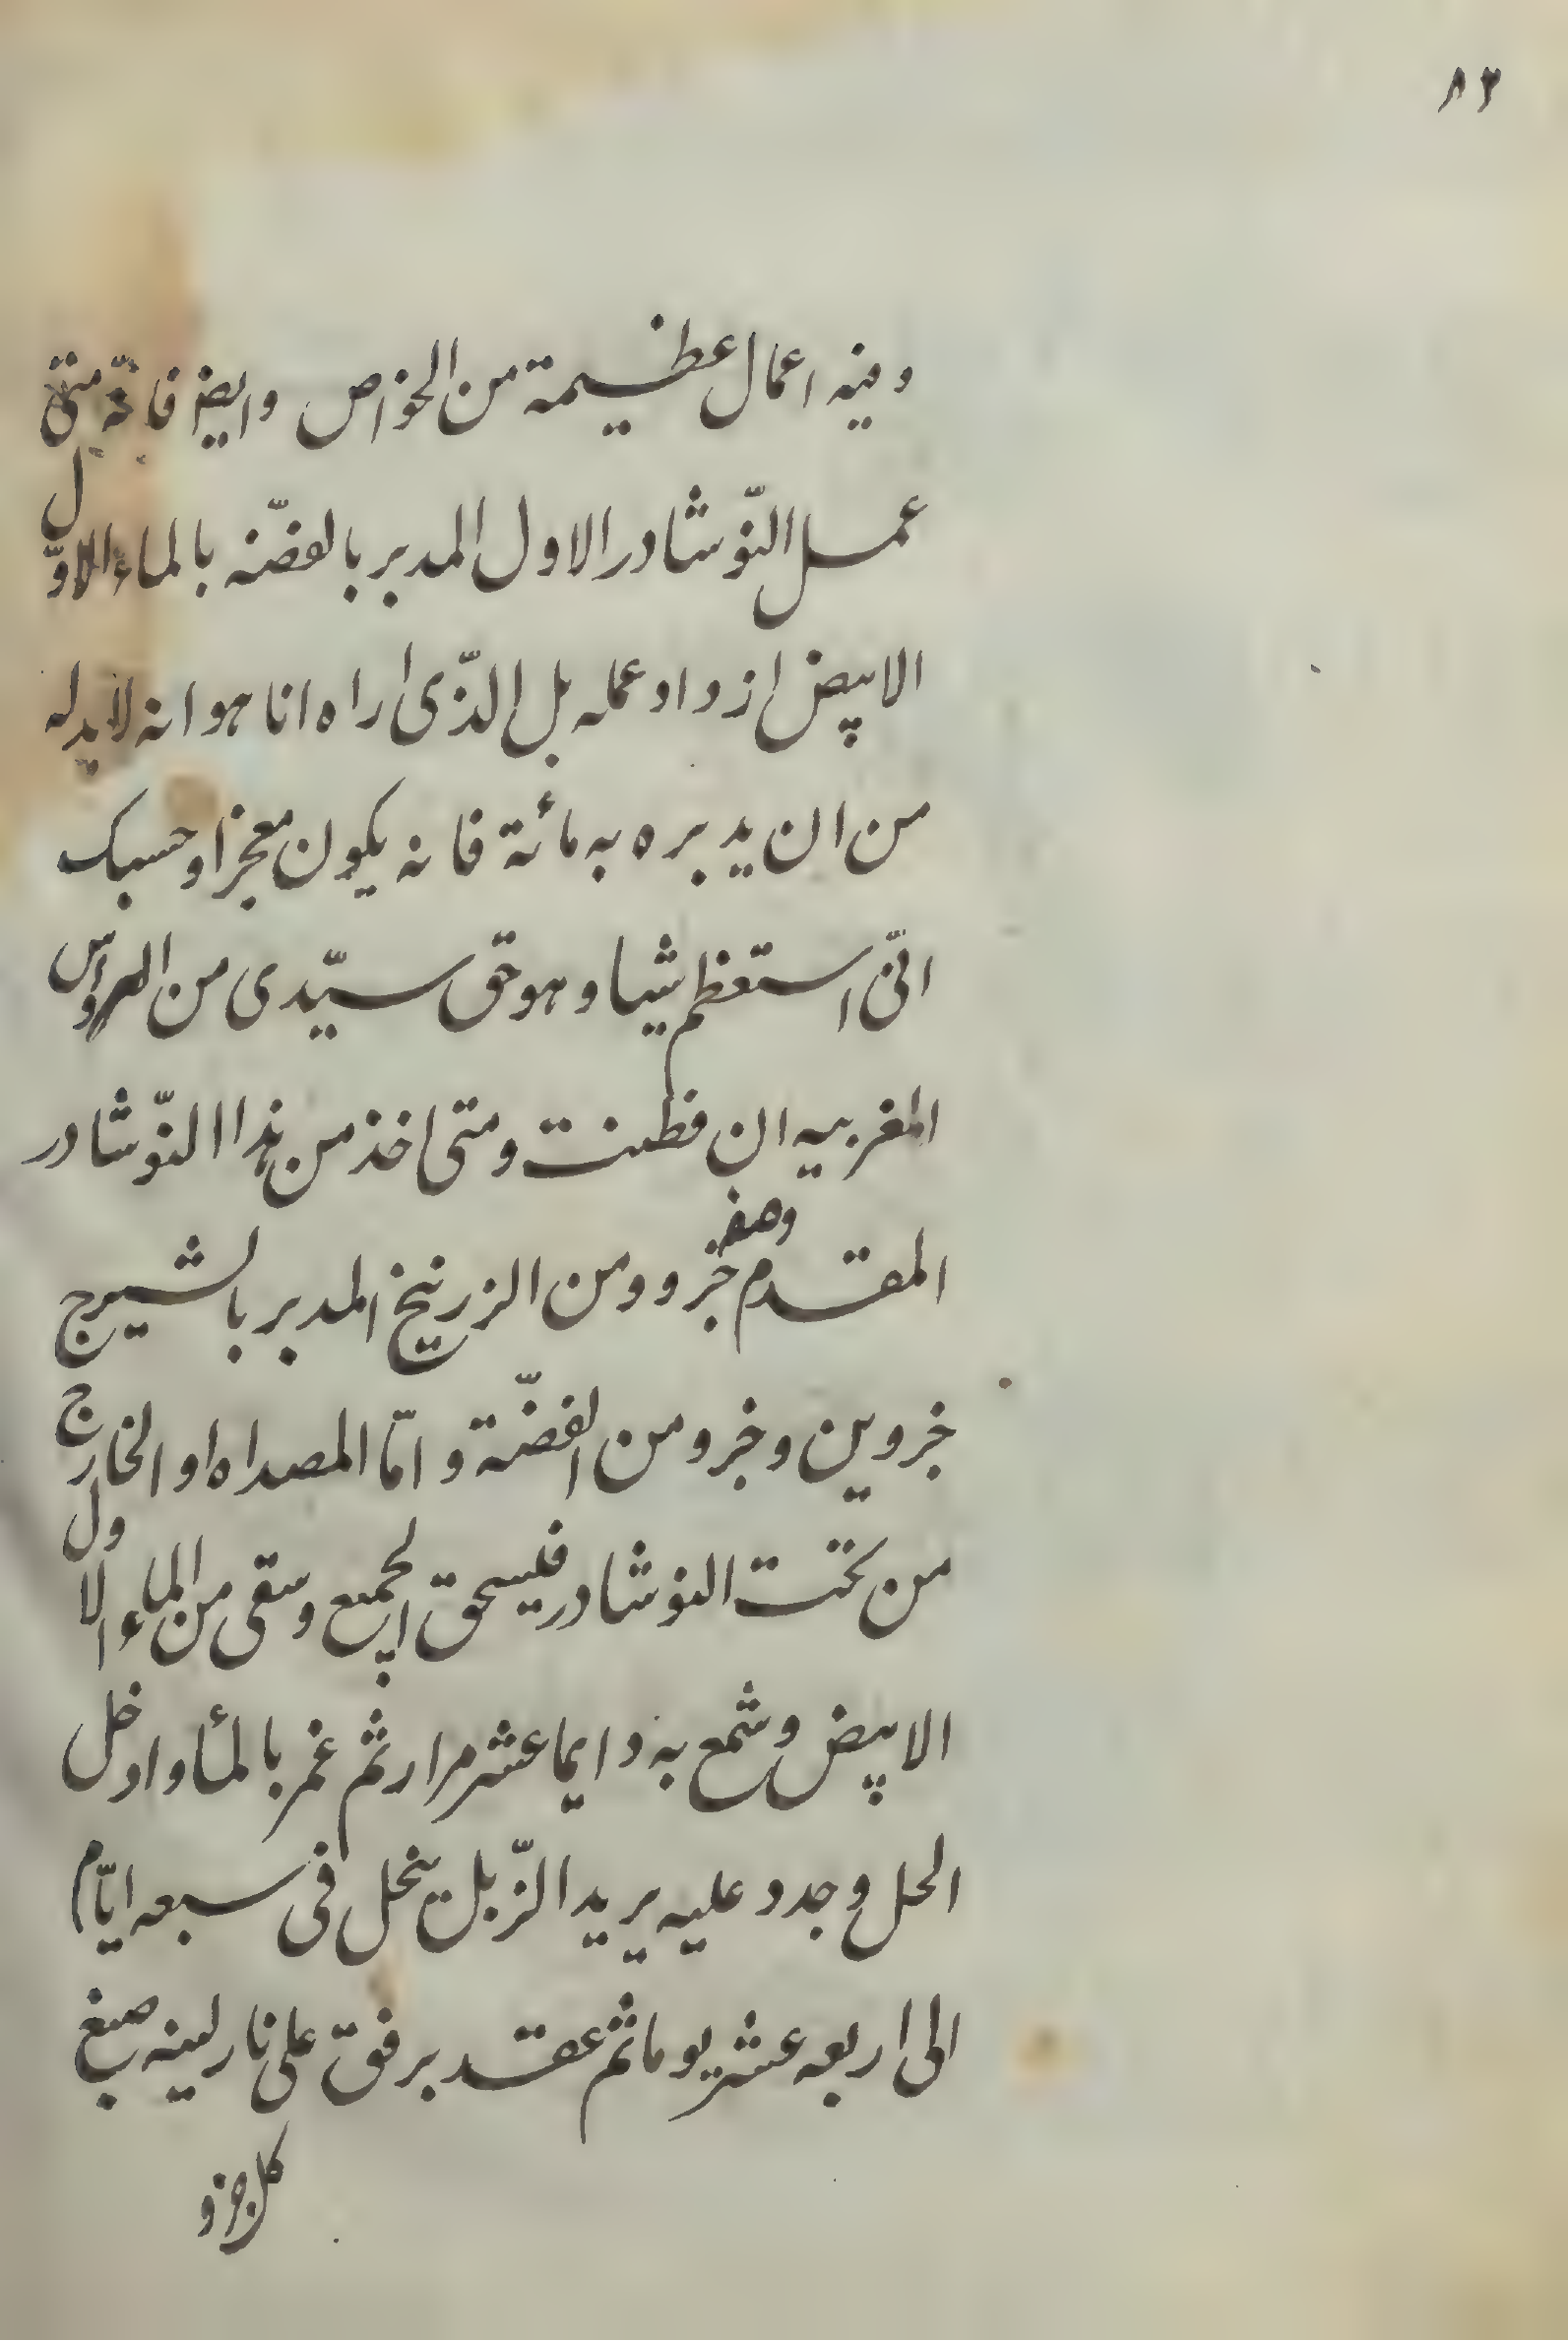 ٨٣
وفيه اعمال عظيمة من الخواص وايض فانّه متى
عمل النّوشادر الاول المدبر بالفضّه بالماء الاوّل
الابيض ازداد عمله بل الذّى اراه انا هو انه لابد له
من ان يدبره به مائة فانه يكون معجزا وحسبك
انّى استعظم شيا وهو حق سيّدى من
المغربيه ان فطنت ومتى اخذ من هذا النّوشادر
المقدم وصفه جزو ومن الزرنيخ المدبر بالشيرج
جزوين وجزو من الفضّة وامّا المصداه او الخارج
من تحت النوشادر فليسحق الجميع وسقى من الماء الاول
الابيض وشمع به دايما عشر مرار ثم غمر بالمأ وادخل
الحل وجدد عليه يريد الزّبل ينحل فى سبعه ايّام
الى اربعه عشر يوما ثم عقد برفق على نار لينه صبغ
كل جزو